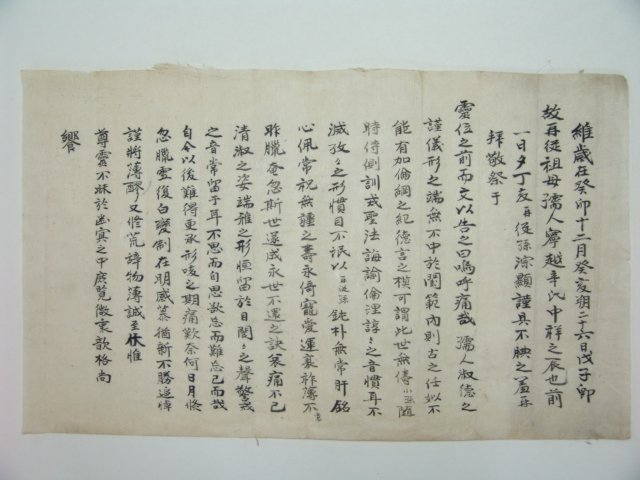 維歲在癸卯十二月癸亥朔二十六日戊子卽
故再從祖母孺人寧越辛氏中祥之辰也前
一日夕丁亥再從孫 顯謹具不腆之羞再
拜敬祭于
靈位之前而文以告之曰嗚呼痛哉 孺人淑德之
謹儀形之端無不中於閫範內則古之任姒不
能有加倫綱之紀德言之模可謂此世無儔小孫隨
時侍側訓式聖法誨諭倫理諄々之音慣耳不
滅孜々之形慣目不泯以再從孫鈍朴無常肝銘
心佩常祝無疆之壽永倚寵愛運衰祚薄不
昨臘奄忽斯世還成永世不還之訣哀痛不已
淸淑之姿端雅之形恒留於目閨々之聲警戒
之音常留于耳不思而自思欲忘而難忘已而哉
自今以後難得更承形唆之期痛歎奈何日月倏
忽臘雲復白變制在明感慕猶新不勝追悼
謹將薄醪又修荒 物薄誠至伏惟
尊靈不昧於幽冥之中庶覽微衷歆格尚
饗